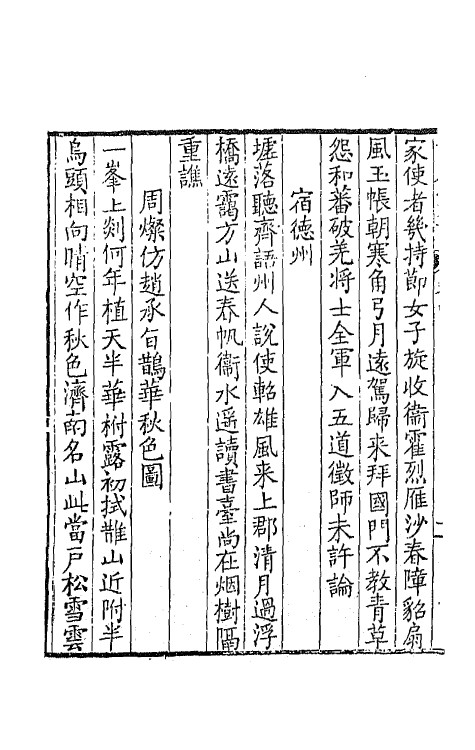 家使者幾持節女子旋收衞霍烈雁沙春障貂扇
風玉帳朝寒角弓月遠駕歸来拜國門不教青草
怨和蕃破羌將士全軍入五道徵師未許論
宿德州
墟落聽齊語州人說使軺雄風来上郡清月過浮
橋遠靄方山送春帆衞水遥讀書臺尚在烟樹隔
重譙
周燦仿趙承旨鵲華秋色圖
一峯上剡何年植天半華柎露初拭鵲山近附半
烏頭相向晴空作秋色濟南名山此當戶松雪雲